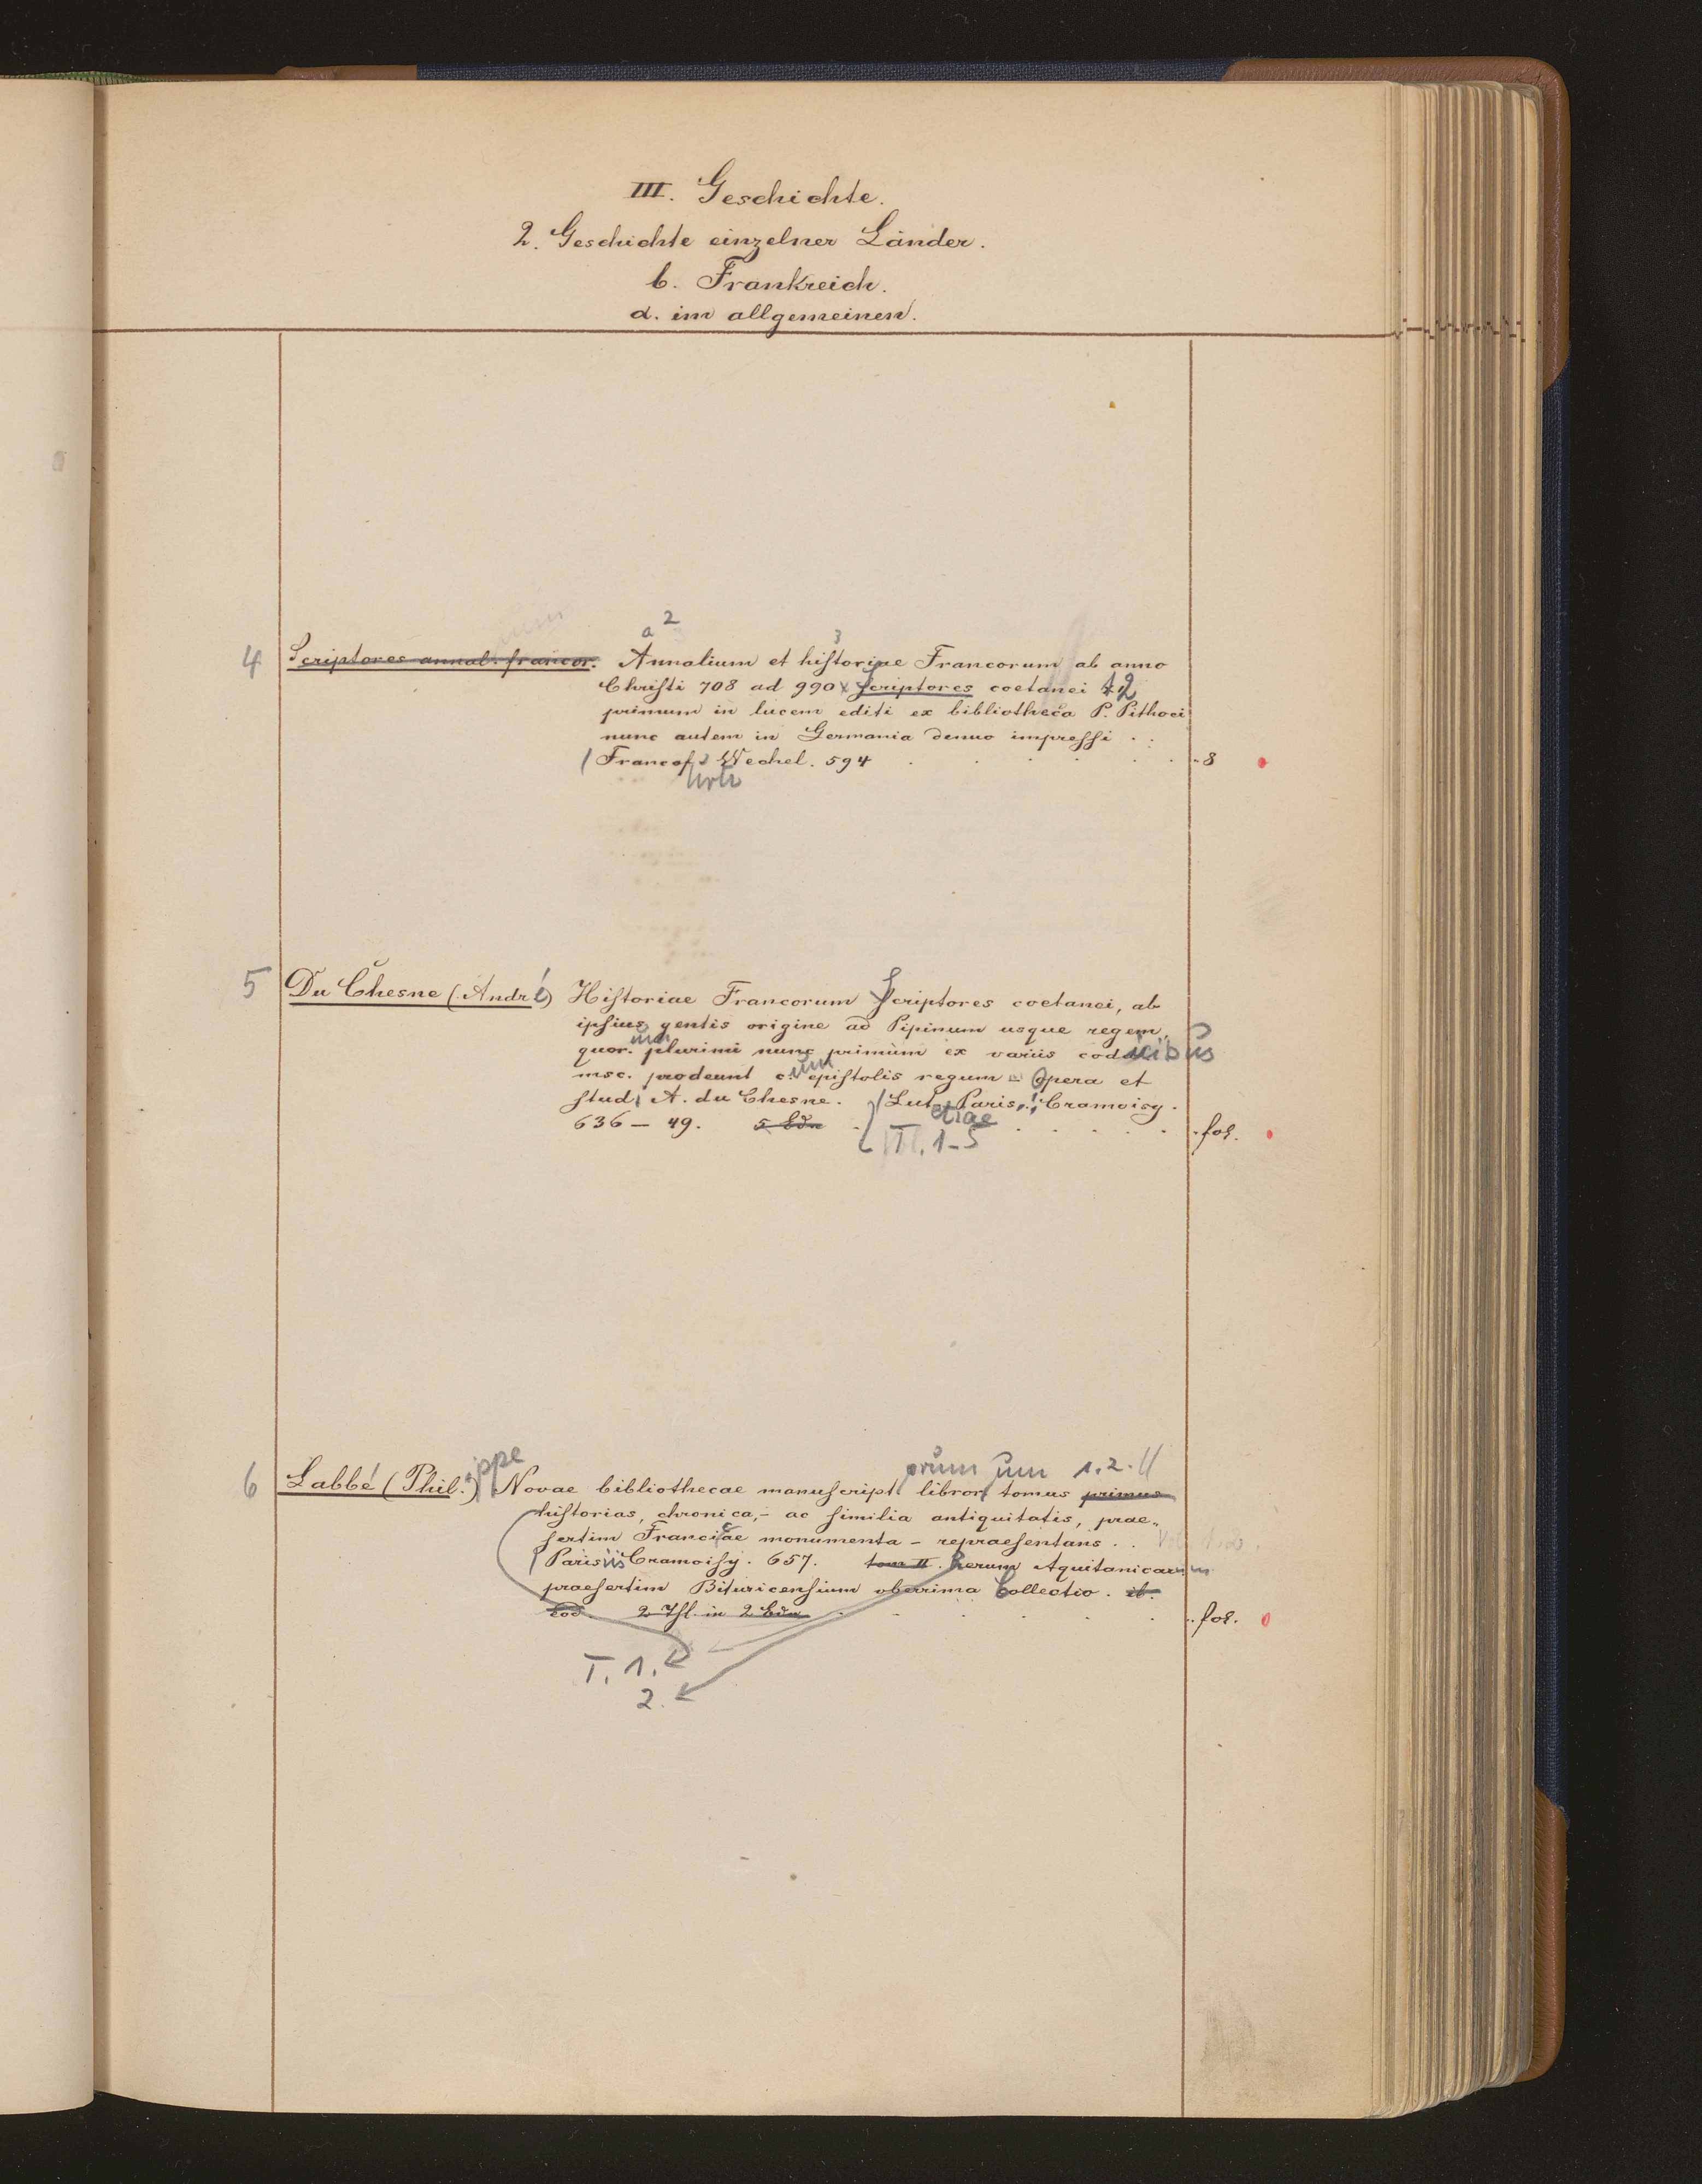 III. Geschichte.
2. Geschichte einzelner Länder.
b. Frankreich.
α. im allgemeinen.
a 2 3
4 Scriptores annal. francor. Annalium et historiae Francorum ab anno
Christi 708 ad 990 Scriptores coetanei 12
primum in lucem editi ex bibliotheca P. Pithoei
nunc autem in Germania denuo impressi . .
Francof. Wechel. 594 . . . . . . 8
urti
5 Du Chesne (André) Historiae Francorum Scriptores coetanei, ab
ipsius gentis origine ad Pipinum usque regem,
quor. plurimi nunc primum ex variis codicibus
um
msc. prodeunt c. epistolis regum – Opera et
um
stud. A. du Chesne. Lut. Paris. Cramoisy.
etiae
636 – 49. 5 Bde . . . . . fol.
T. 1-5
orum um 1.2.
6 Labbé (Philippe) Novae bibliothecae manuscript. libror. tomus primus
historias, chronica,- ac similia antiquitatis, prae-
sertim Franciae monumenta – repraesentans . .
Parisiis Cramoisy. 657. tom II. Rerum Aquitanicarum
praesertim Bituricensium uberrima Collectio. ib.
eod. 2 Thl. in 2 Bdn . . . . . fol.
T. 1.
2.